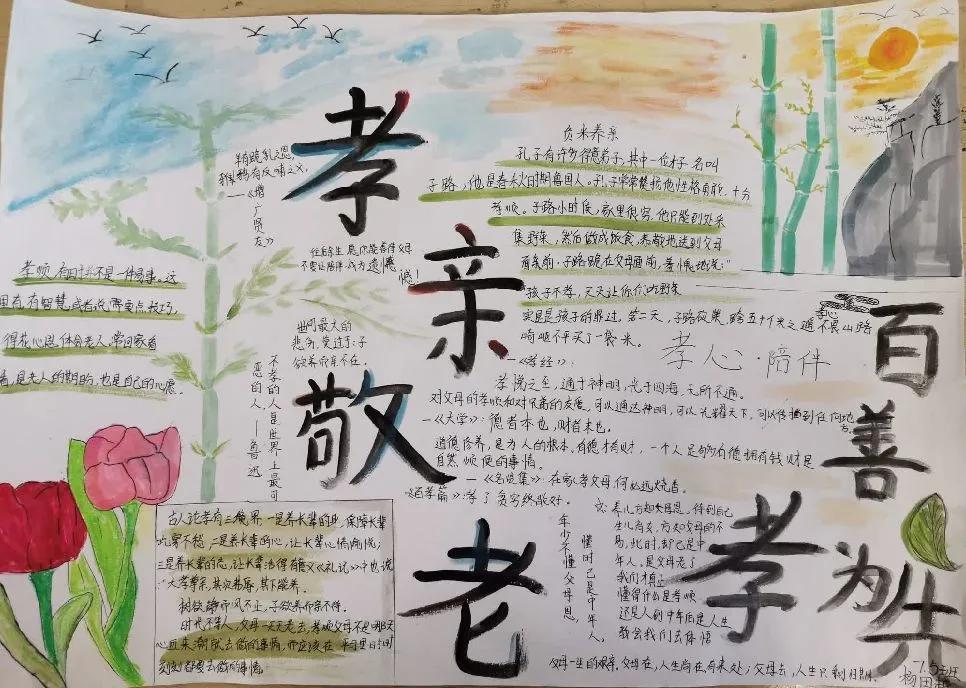 孝
亲
敬
老
百
善
孝
为
先
羊有跪乳之恩,
鸦有反哺之义,
—《增
广贤
友》
往后余生 愿你能善待父母
不要让陪伴成为遗憾
憾!
负米养亲
孔子有许多得意弟子,其中一位名叫
子路,他是春秋时期鲁国人。孔子常常赞扬他性格勇敢、十分
孝顺。子路小时侯,家里很穷。他只能到处采
集野菜,然后做成饭食,恭敬地送到父母
面前,子路跪在父母面前,羞愧地说:"
孩子不孝,天天让你们吃野菜
实是是孩子的罪过。第二天,子路夜
崎岖不平买了一袋米。
孝顺,有时并不是一件易事。这
里有智慧,或者说需要点技巧,
得花心思,体会老人,常回家看
看,是老人的期盼,也是自己的心愿
世间最大的
悲剧,莫过于:子
欲养而亲不在。
不孝的人是世界上最可
恶的人。
——鲁迅
孝心陪伴
—《孝经》:
孝悌之至,通于神明,光于四海,无所不通。
对父母的孝顺和对兄弟的友爱,可以通达神明,可以光耀天下,可以传播到任何地
方。
—《大学》:德者本也,财者末也。
道德修养,是为人的根本,有德才有财,一个人足够有德拥有钱财是
自然 顺便的事情。
:在家孝父母,何必远烧香。
古人论孝有三境界:一是养长辈的身,保障长辈
吃穿不愁,二是养长辈的心,让长辈心情愉悦;
三是养长辈的志,让长辈活得 《礼记》中也说:
"大孝尊亲,其次弗辱,其下能养。
树欲静而风不止,子欲养而亲不待。
时代不等人,父母一天天老去,孝顺父母不是哪天
心血来潮就去做的事情,而应该在平日里时时
刻刻都要去做的事情。
年少不懂父母恩,
懂时已是中年人。
养儿方知父母恩。待到自己
生儿育女,方知父母的不
易,此时,却已是中
年人。是父母老了
我们才真正
懂得什么是孝顺
还是人到中年后是人生
教会我们去体悟
父母在,人生尚有来处;父母去,人生只剩归期。
7.5班